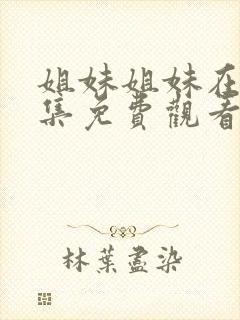 姐妹姐妹在
集免費觀看
林葉盡染